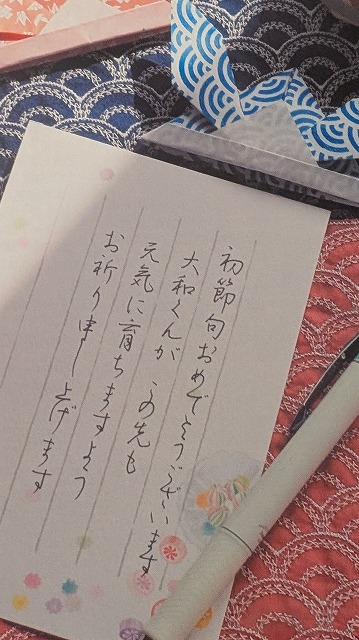 初節句おめでとうございます
大和くんが この先も
元気に育ちますよう
お祈り申し上げます